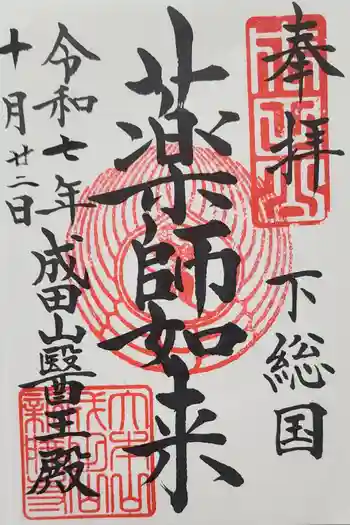 奉拝
下総国
薬師如来
成田山醫王殿
令和七年
十月廿二日